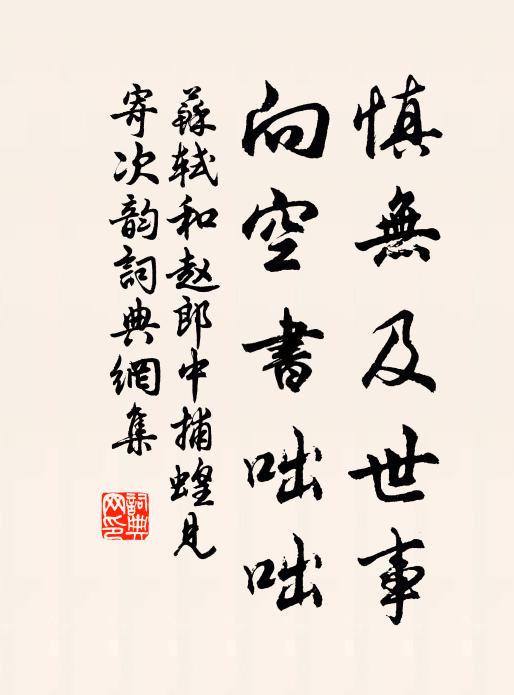 慎無及世事
向空書咄咄
蘇軾和赵郎中捕蝗見
寄次韵詞典網集
詞典网印